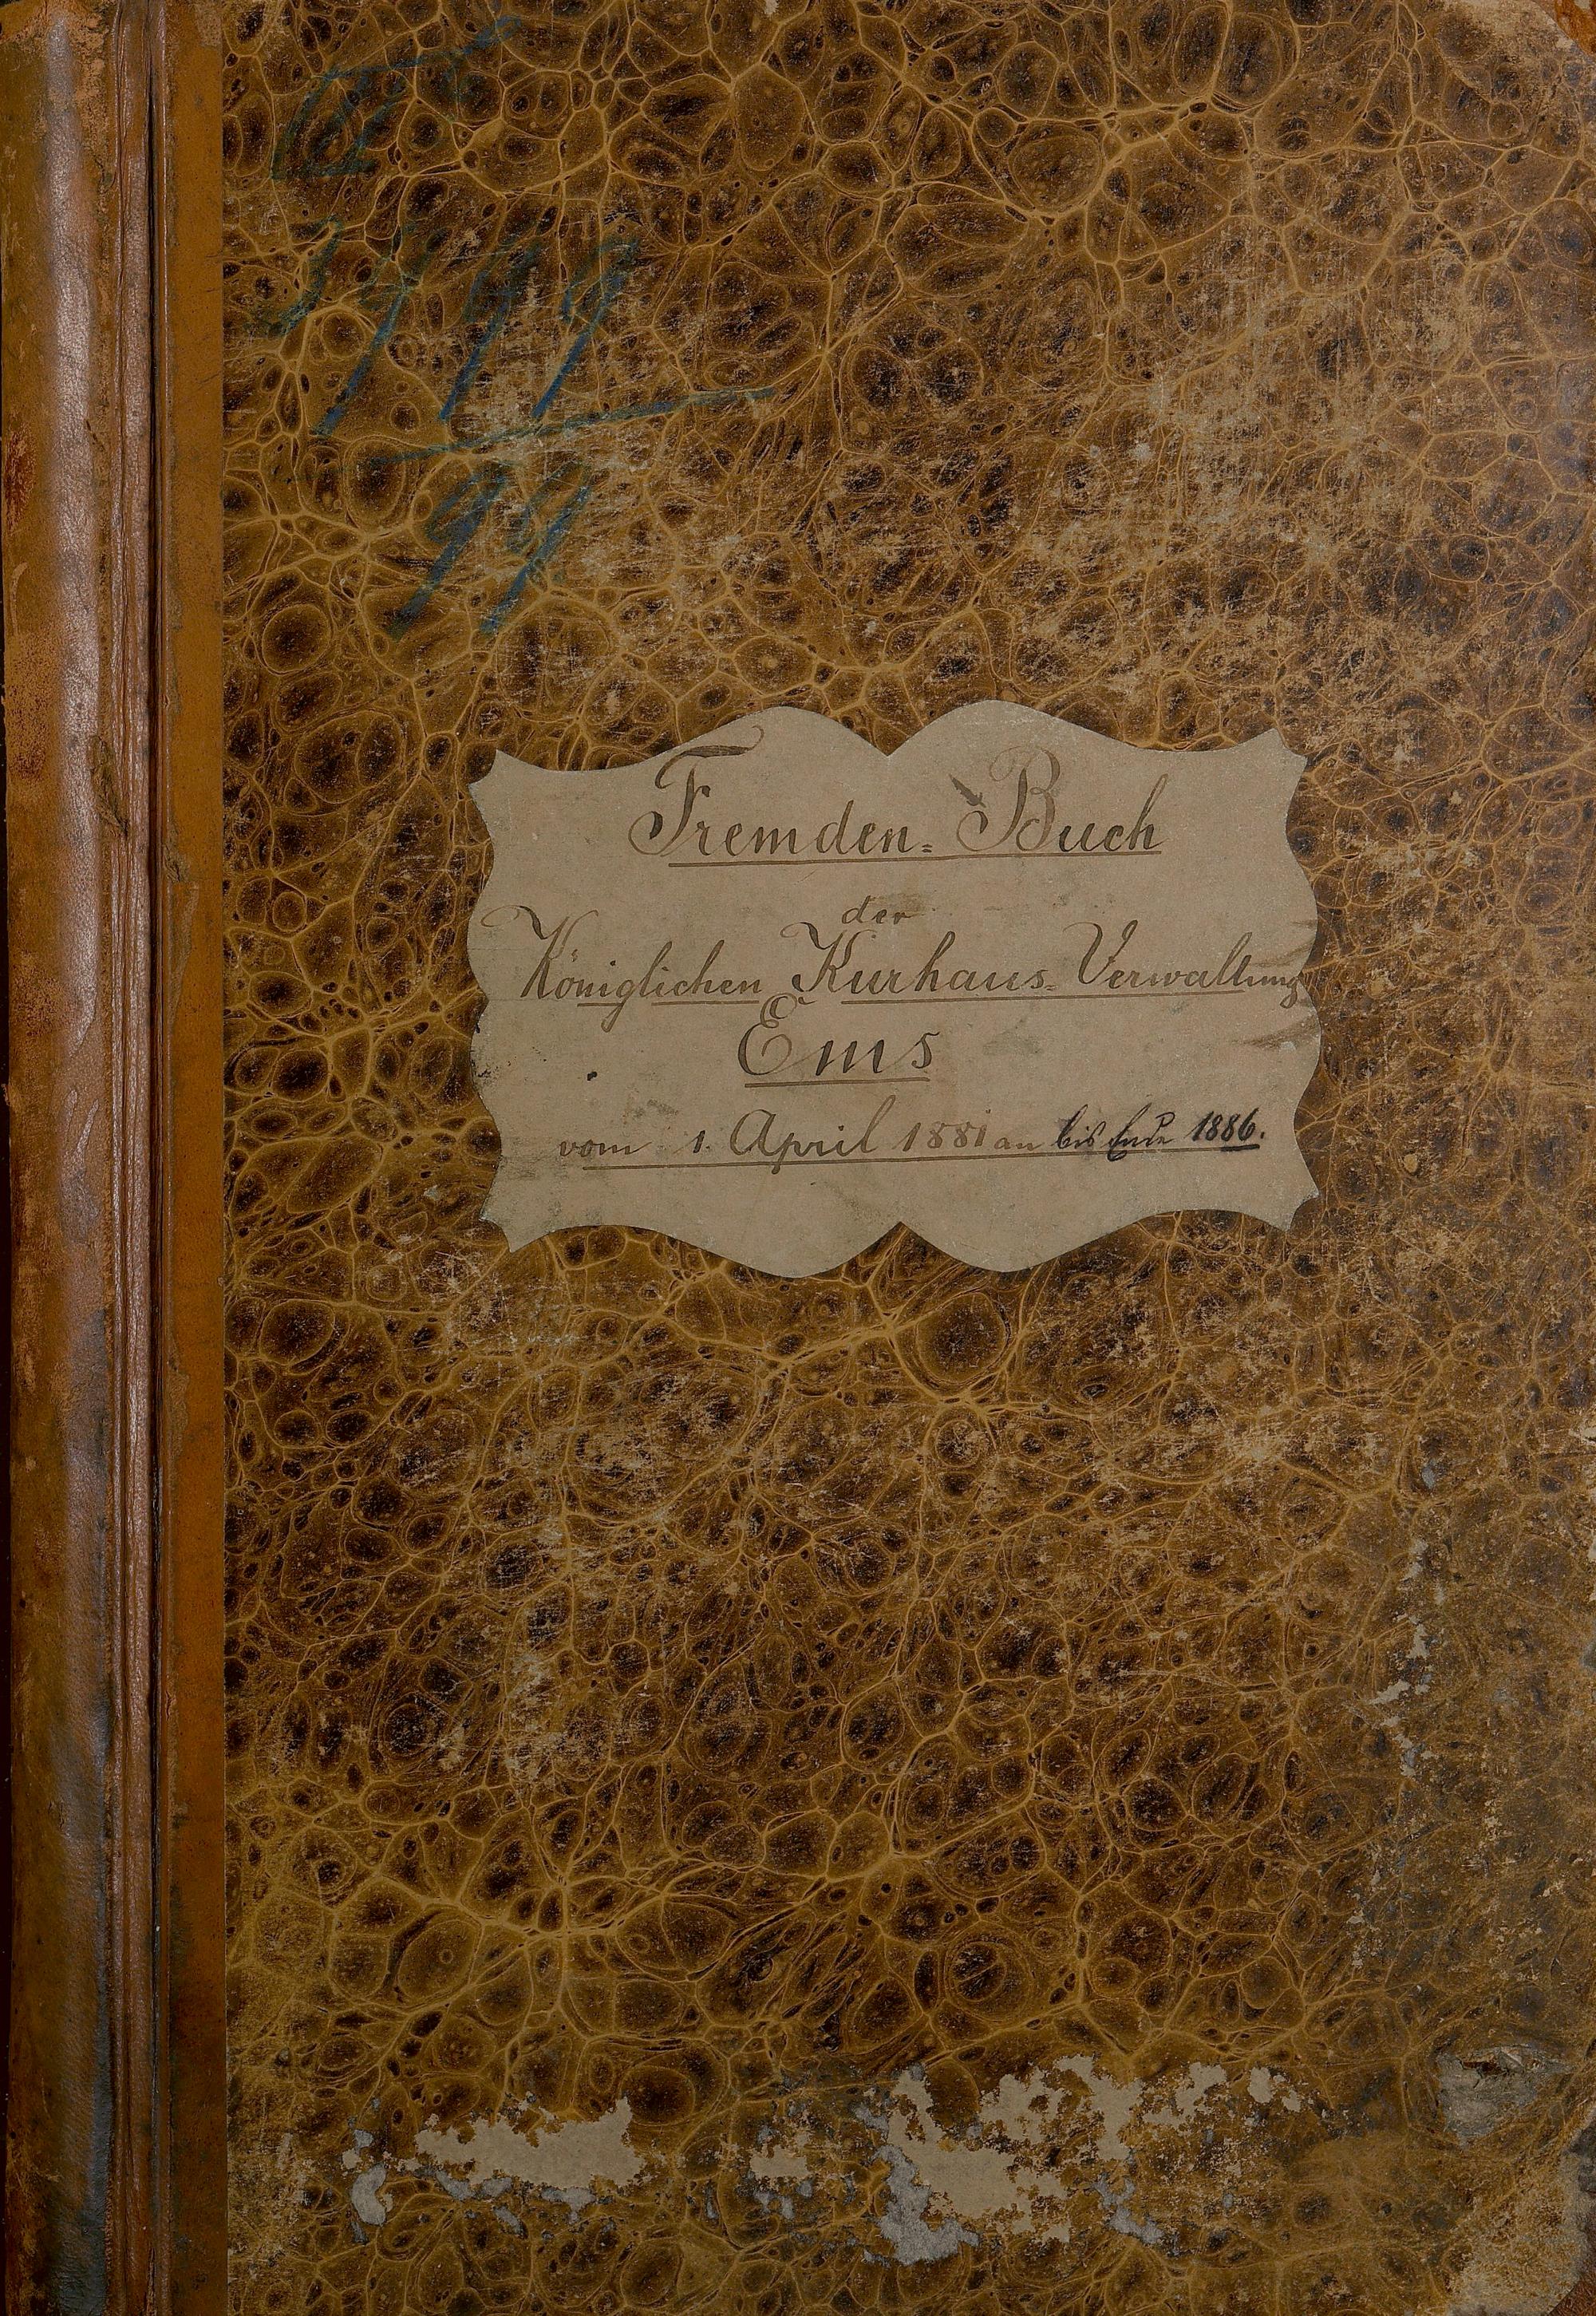 1999
99
Fremden= Buch
der
Königlichen Kurhaus= Verwaltung
Ems
vom 1. April 1881 an bis Ende 1886.